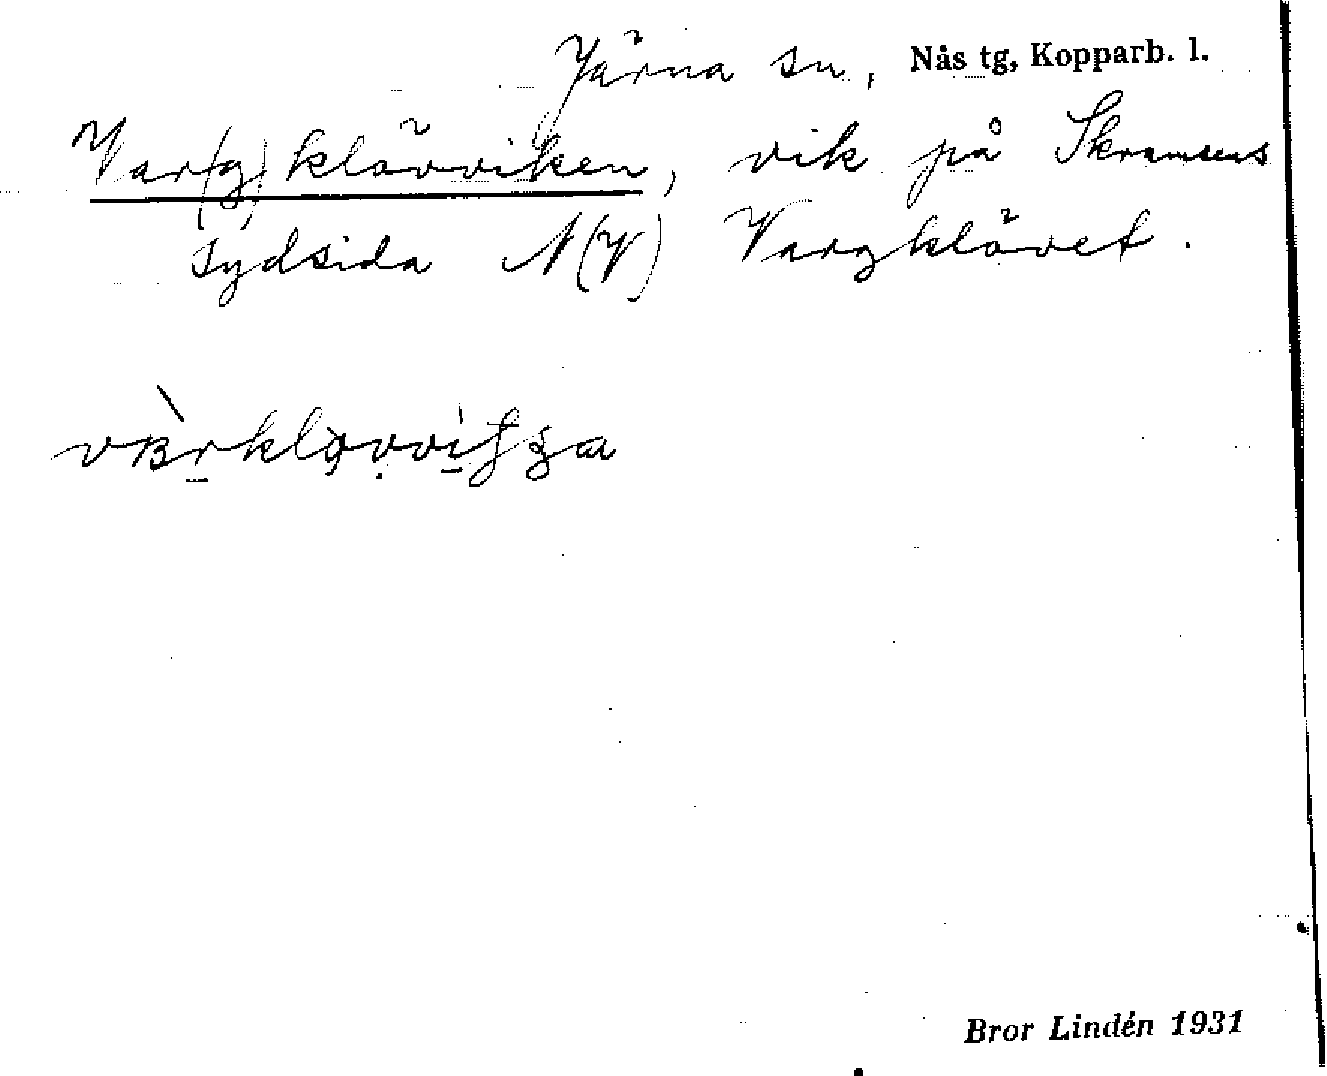 Järna sn, Nås tg, Kopparb. l.
Var(g)klövviken, vik på Skramsens
sydsida N(V) Vargklövet.
Bror Lindén 1931